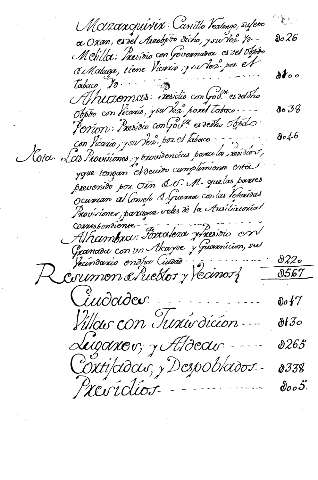 Mazarquivir: Castillo
a Oran, es del Arzobpdo dicho, y su Vez.º Yo. D026
Melilla: Presidio con Governador es del Obpdo
de Malaga, tiene Vicario y su Vez.º por el
tabaco D100
Alhuzemas: Presidio con Gov.ºr es del dho
Obpdo con Vicario, y su Vez.º por el tabaco D038
Peñon: Presidio con Gov.ºr es del dho Obpdo
con Vicario, y su Vez.º por el tabaco D046
Nota. Las Provisiones, y providencias para los
y que tengan el devido cumplimiento está
prevenido por orn de S. M. que las partes
ocurran al Consejo de Guerra con las referidas
Provisiones, para que usen de la Auxiliatoria
correspondiente
Alhambra: Fortaleza y Presidio en
Granada con un Alcayde y Guarnicion, su
Vecindario en dha Ciudad D220
Resumen de Pueblos y Vecinos D567
Ciudades D017
Villas con Jurisdicion D130
Lugares, y Aldeas D265
Cortijadas, y Despoblados D338
Presidios D005.